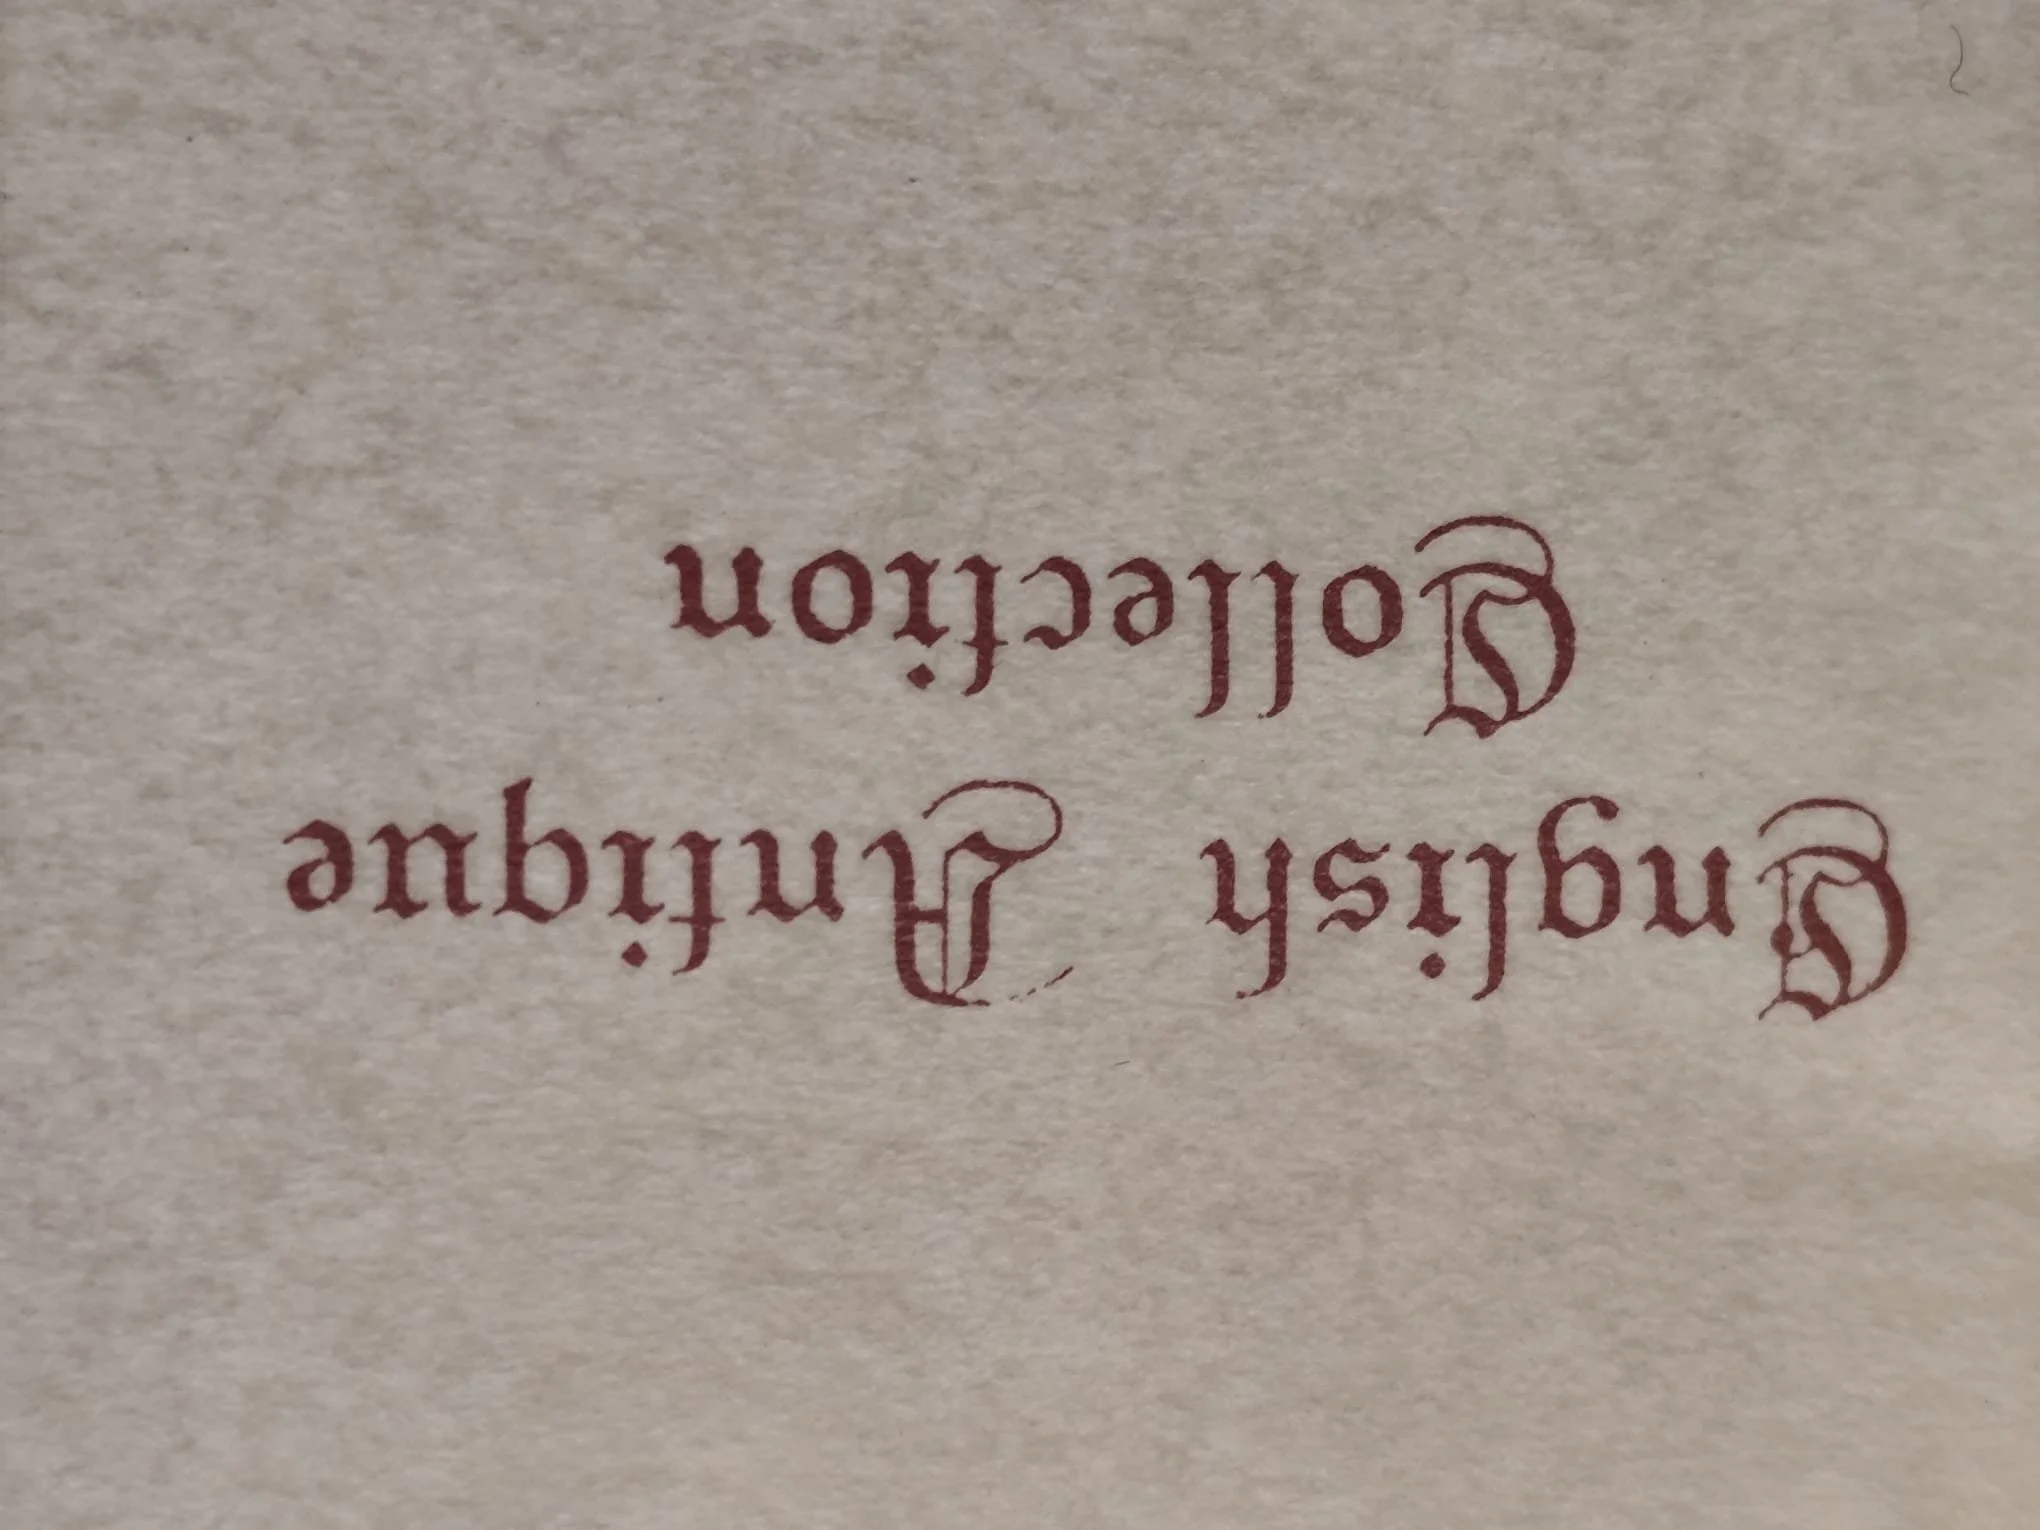 English Antique
Collection